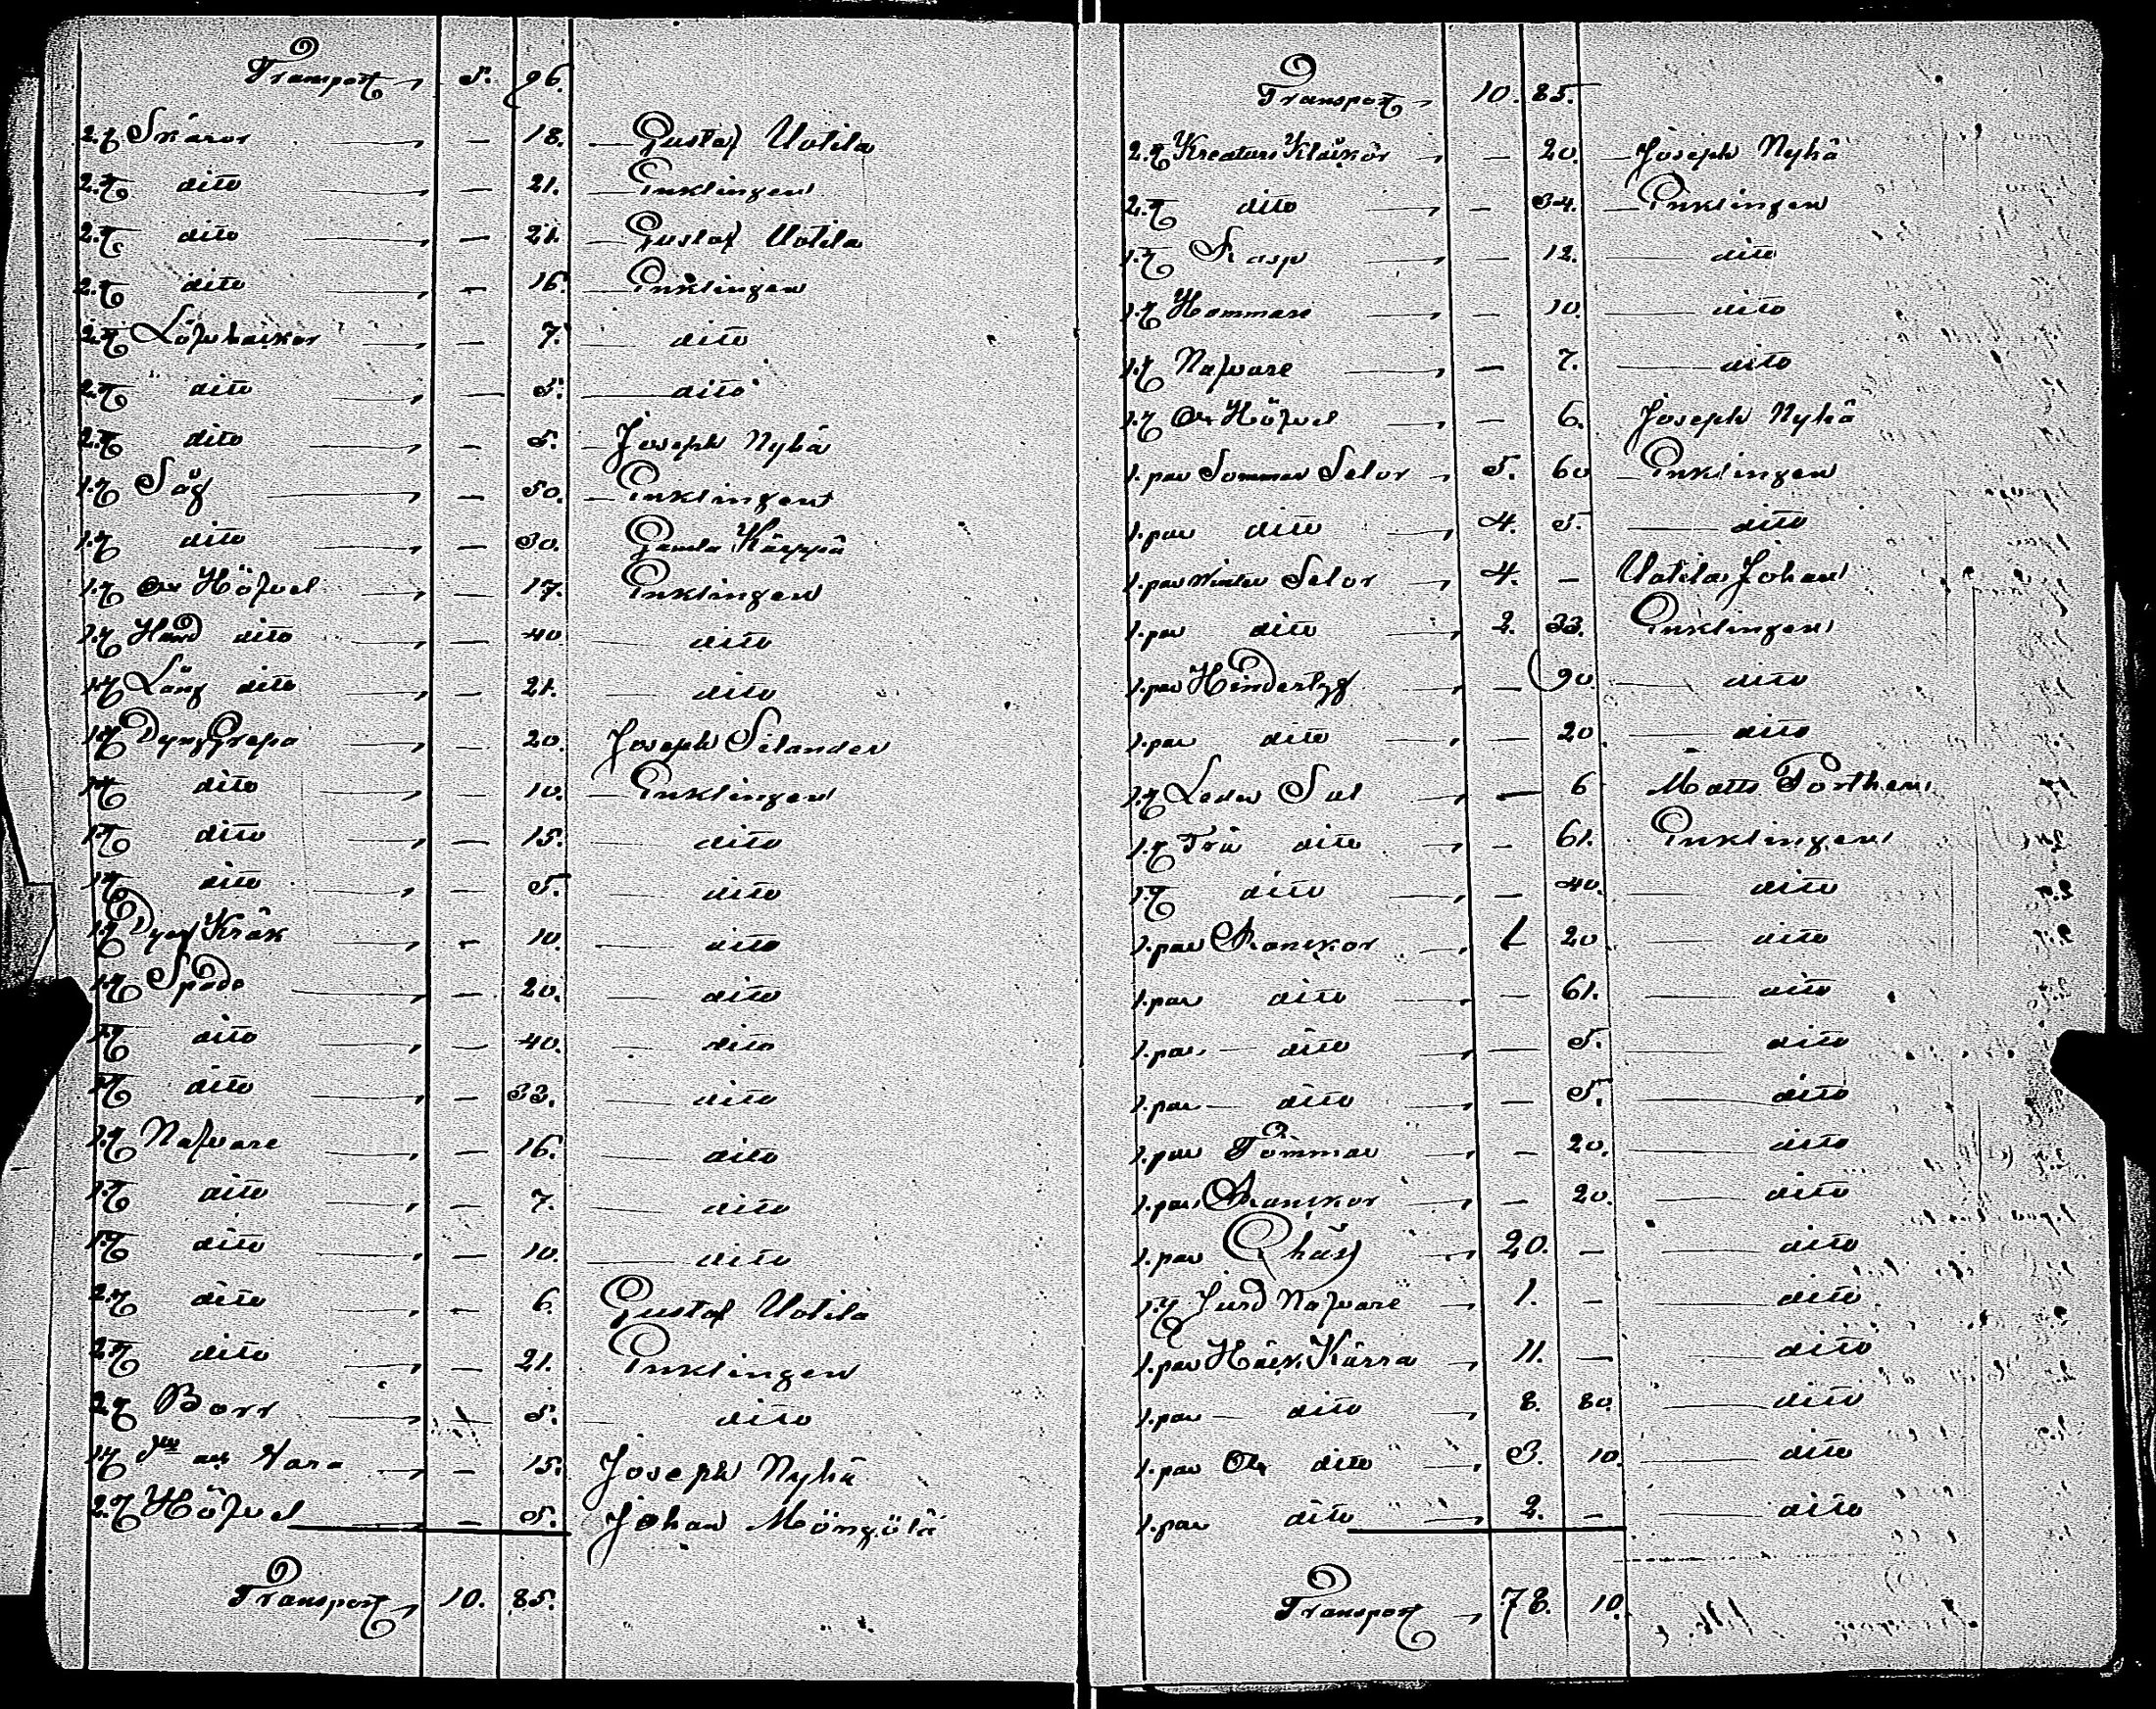 Transport 5. 96.
2. st Skäror — 18. Gustaf Uotila
2. st dito — 21. Enklingen
2. st dito — 21. Gustaf Uotila
2. st dito — 16. Enklingen
2. st — 7. dito
2. st dito — 5. dito
2. st dito — 5. Joseph Nyhä
1. st Såg — 50. Enklingen
1. st dito — 30. Gamla Kärppä
1. st Ox Höfvel — 17. Enklingen
1. st Hand dito — 40 dito
1. st Lång dito — 21. dito
1. st Dyng Grepa — 20. Joseph Selander
1. st dito — 10. Enklingen
1. st dito — 15. dito
1. st dito — 5. dito
1. st Dyng Kråk — 10. dito
1. st Spade — 20. dito
1. st dito — 40. dito
1. st dito — 33. dito
1. st Nafvare — 16. dito
1. st dito — 7. dito
1. st dito — 10. dito
2. st dito — 6. Gustaf Uotila
2. st dito — 21. Enklingen
2. st Borr — 5. dito
1. st — 15. Joseph Nyhä
2. st Höfvel — 5. Johan Möngölä
Transport 10. 85.
Transport 10. 85.
2. st Kreaturs Klåckor — 20. Joseph Nyhä
2. st dito — 34. Enklingen
1. st Rasp — 12. dito
1. st Hammare — 10 dito
1. st Nafvare — 7. dito
1. st Ox Höfvel — 6. Joseph Nyhä
1. par Sommar Selor 5. 60 Enklingen
1. par dito 4. 5. dito
1. par Winter Selor 4. — Uotila Johan
1. par dito 2. 33. Enklingen
1. par — 90. dito
1. par dito — 20. dito
1. st Leder Sal — 6 Matts Porthen
1. st Trä dito — 61. Enklingen
1. st dito — 40. dito
1. par Skanckor 1 20 dito
1. par dito — 61. dito
1. par dito — 5. dito
1. par dito — 5. dito
1. par Tömmar — 20. dito
1. par Skanckor — 20. dito
1. par Chäs 20. — dito
1. st Jurd Nafvare 1. — dito
1. par Häst Kärra 11. — dito
1. par dito 8. 80. dito
1. par Ox dito 3. 10. dito
1. par dito 2. — dito
Transport 78. 10.